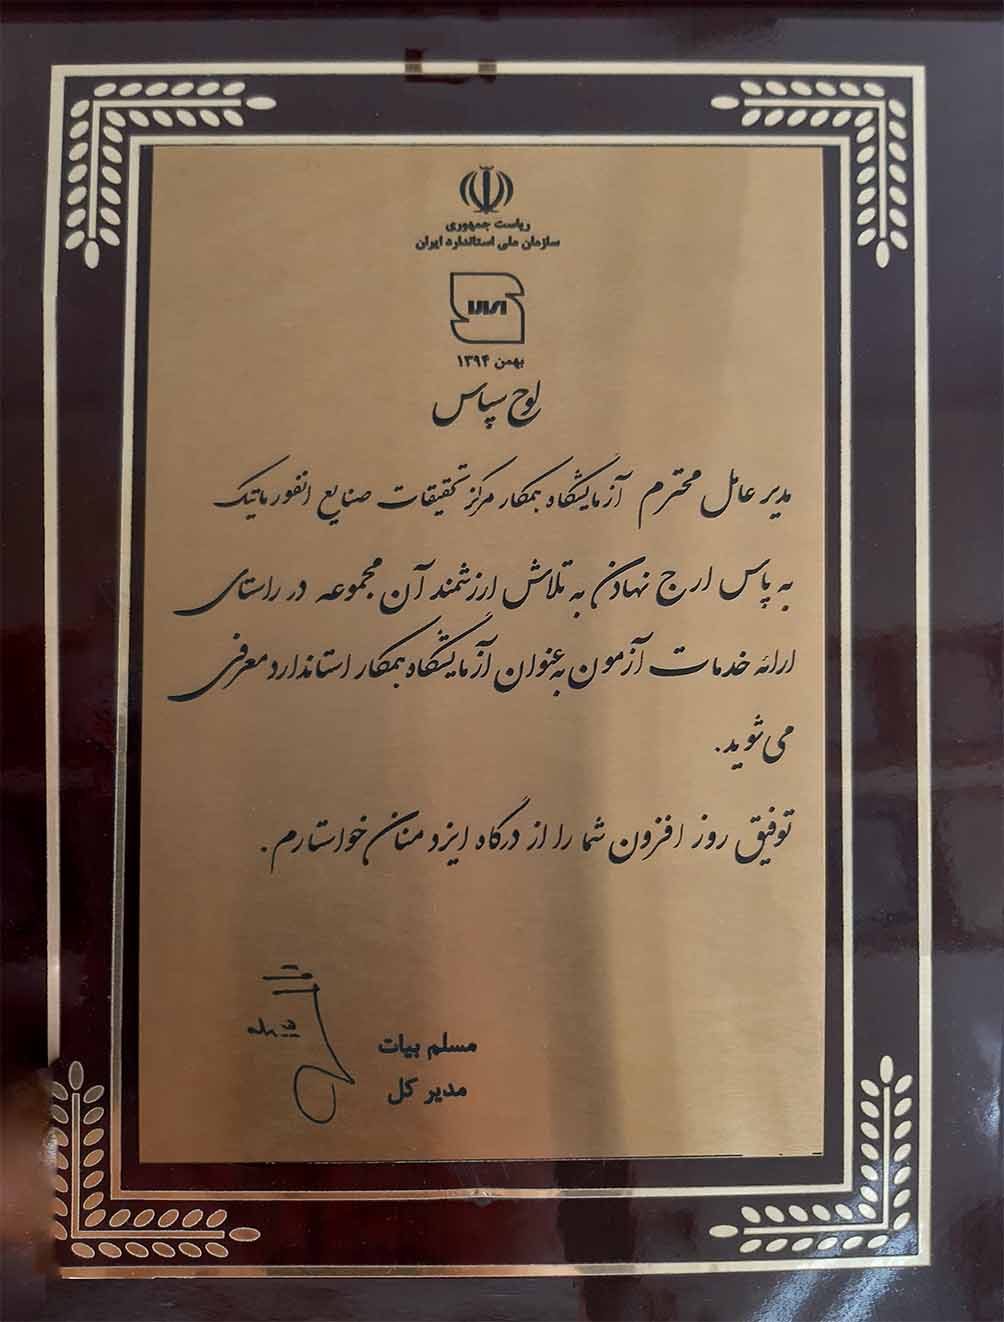 ریاست جمهوری
سازمان ملی استاندارد ایران
بهمن ۱۳۹۴
لوح سپاس
مدیر عامل محترم آزمایشگاه همکار مرکز تحقیقات صنایع انفورماتیک
به پاس ارج نهادن به تلاش ارزشمند آن مجموعه در راستای
ارائه خدمات آزمون به عنوان آزمایشگاه همکار استاندارد معرفی
می شوید.
توفیق روز افزون شما را از درگاه ایزد منان خواستارم.
مسلم بیات
مدیر کل